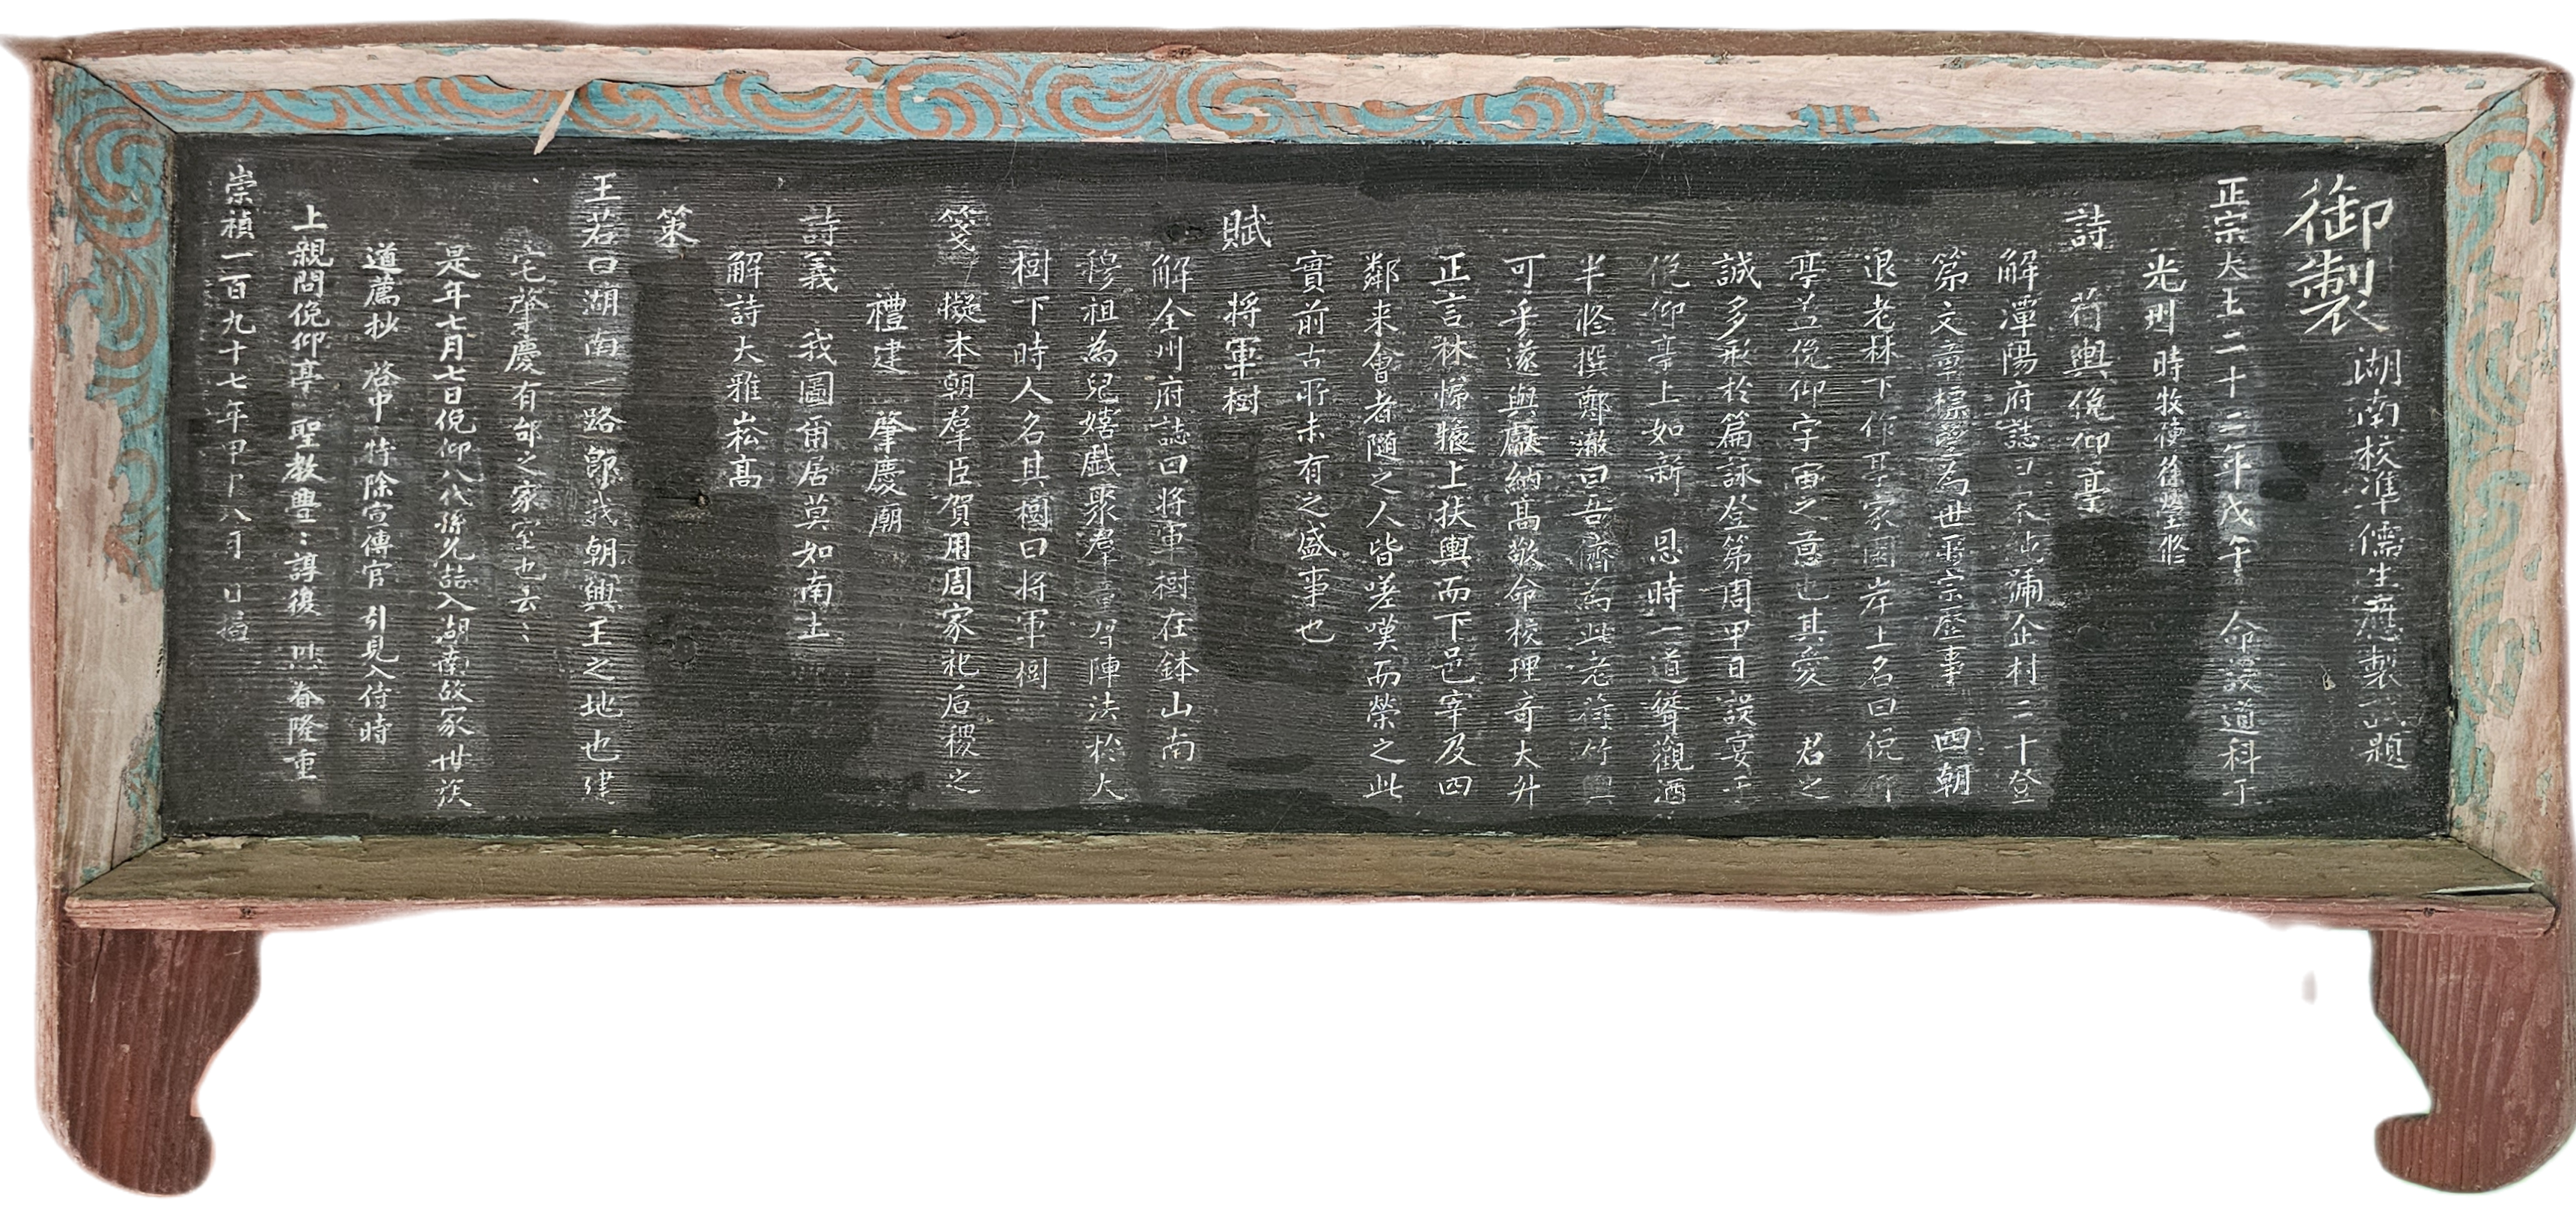 御製 湖南校準儒生應製試題
正宗大王二十二年戊午 命設道科于
光州 時牧使徐瀅修
詩 荷輿俛仰亭
解潭陽府誌曰宋純踊企村二十登
第文章標望為世所宗歷事 四朝
退老林下作亭家園岸上名曰俛仰
亭盖俛仰宇宙之意也其愛 君之
誠多形於篇詠登第周甲日設宴于
俛仰亭上如新 恩時一道聳觀酒
半修撰鄭澈曰吾儕為此老荷竹輿
可乎遂與獻納高敬命校理奇大升
正言林悌攘上扶輿而下邑宰及四
鄰来會者隨之人皆嗟嘆而榮之此
實前古所未有之盛事也
賦 将軍樹
解全州府誌曰将軍樹在鉢山南
穆祖為兒嬉戲聚羣童習陣法於大
樹下時人名其樹曰将軍樹
箋 擬本朝羣臣賀用周家祀后稷之
禮建 肇慶廟
詩義 我圖甭居莫如南土
解詩大雅崧髙
策
王若曰湖南一路即我朝興王之地也建
宅肇慶有邰之家室也云〻
是年七月七日俛仰八代孫光喆入湖南故家世族
道薦抄 啓中特除宣傳官 引見入侍時
上親問俛仰亭 聖教豐〻諄複 眷隆重
崇禎一百九十七年甲 八月 日揭